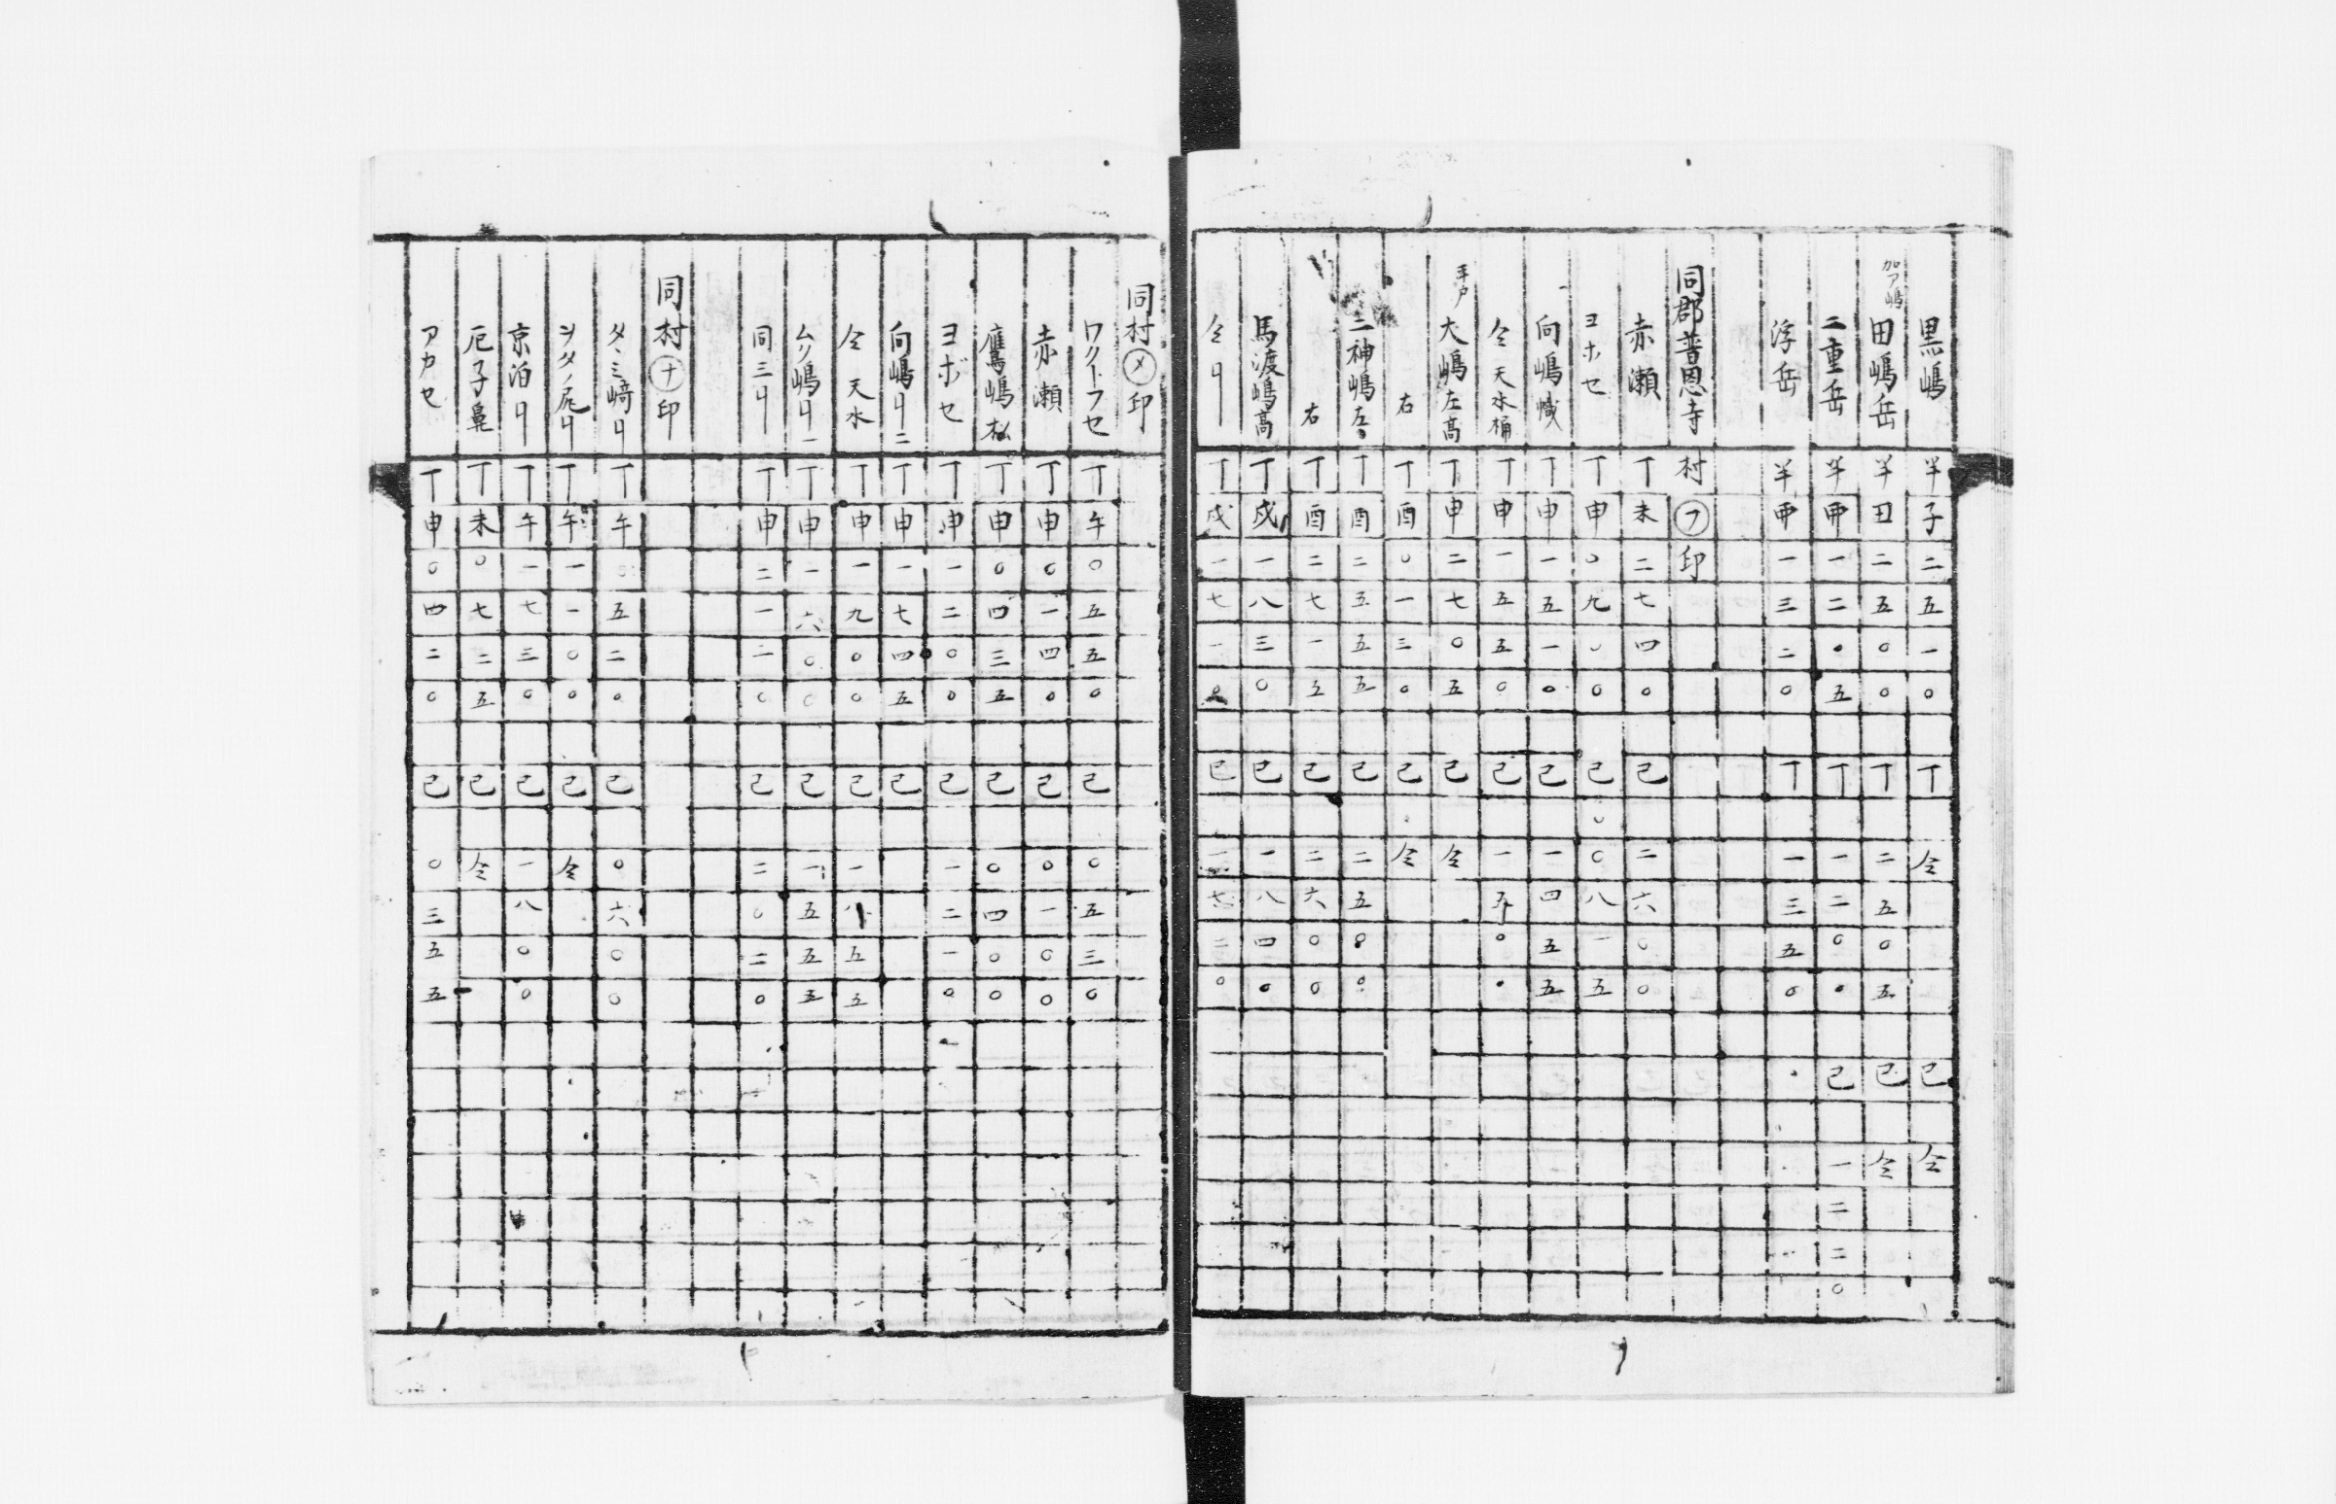 黒嶋 半子二五一〇 丁 仝 己 仝
加ア嶋 田嶋岳 半田二五〇〇 丁 二五〇五 己 仝
二重岳 半甲一二〇五 丁 一二〇〇 己 一二二〇
浮岳 半甲一三二〇 丁 一三五〇
同郡普恩寺村㋫印
赤瀬 丁未二七四〇 己 二六〇〇
ヨホセ 丁申〇九〇〇 己 〇八一五
向嶋幟 丁申一五一〇 己 一四五五
仝天水桶 丁申一五五〇 己 一五〇〇
犬嶋左高 丁申二七〇五 己 仝
右 丁酉〇一三〇 己 仝
二神嶋 丁酉二五五五 己 二五〇〇
右 丁酉二七一五 己 二六〇〇
馬渡嶋高 丁戌一八三〇 己 一八四〇
仝〃 丁戌一七一〇 己 一七二〇
同村㋱印
ワクトフセ 丁午〇五五〇 己 〇五三〇
赤瀬 丁申〇一四〇 己 〇一〇〇
鷹嶋松 丁申〇四三五 己 〇四〇〇
ヨボセ 丁申一二〇〇 己 一二一〇
向嶋〃二 丁申一七四五 己
仝天水 丁申一九〇〇 己 一八五五
ムク嶋〃一 丁申一六〇〇 己 一五五五
同三〃 丁申二一二〇 己 二〇二〇
同村㋤印
タヽミ﨑〃 丁午〇五二〇 己 〇六〇〇
シタノ尻〃 丁午一一〇〇 己 仝
京泊〃 丁午一七三〇 己 一八〇〇
厄子鼻 丁未〇七二五 己 仝
アカセ 丁申〇四二〇 己 〇三五五